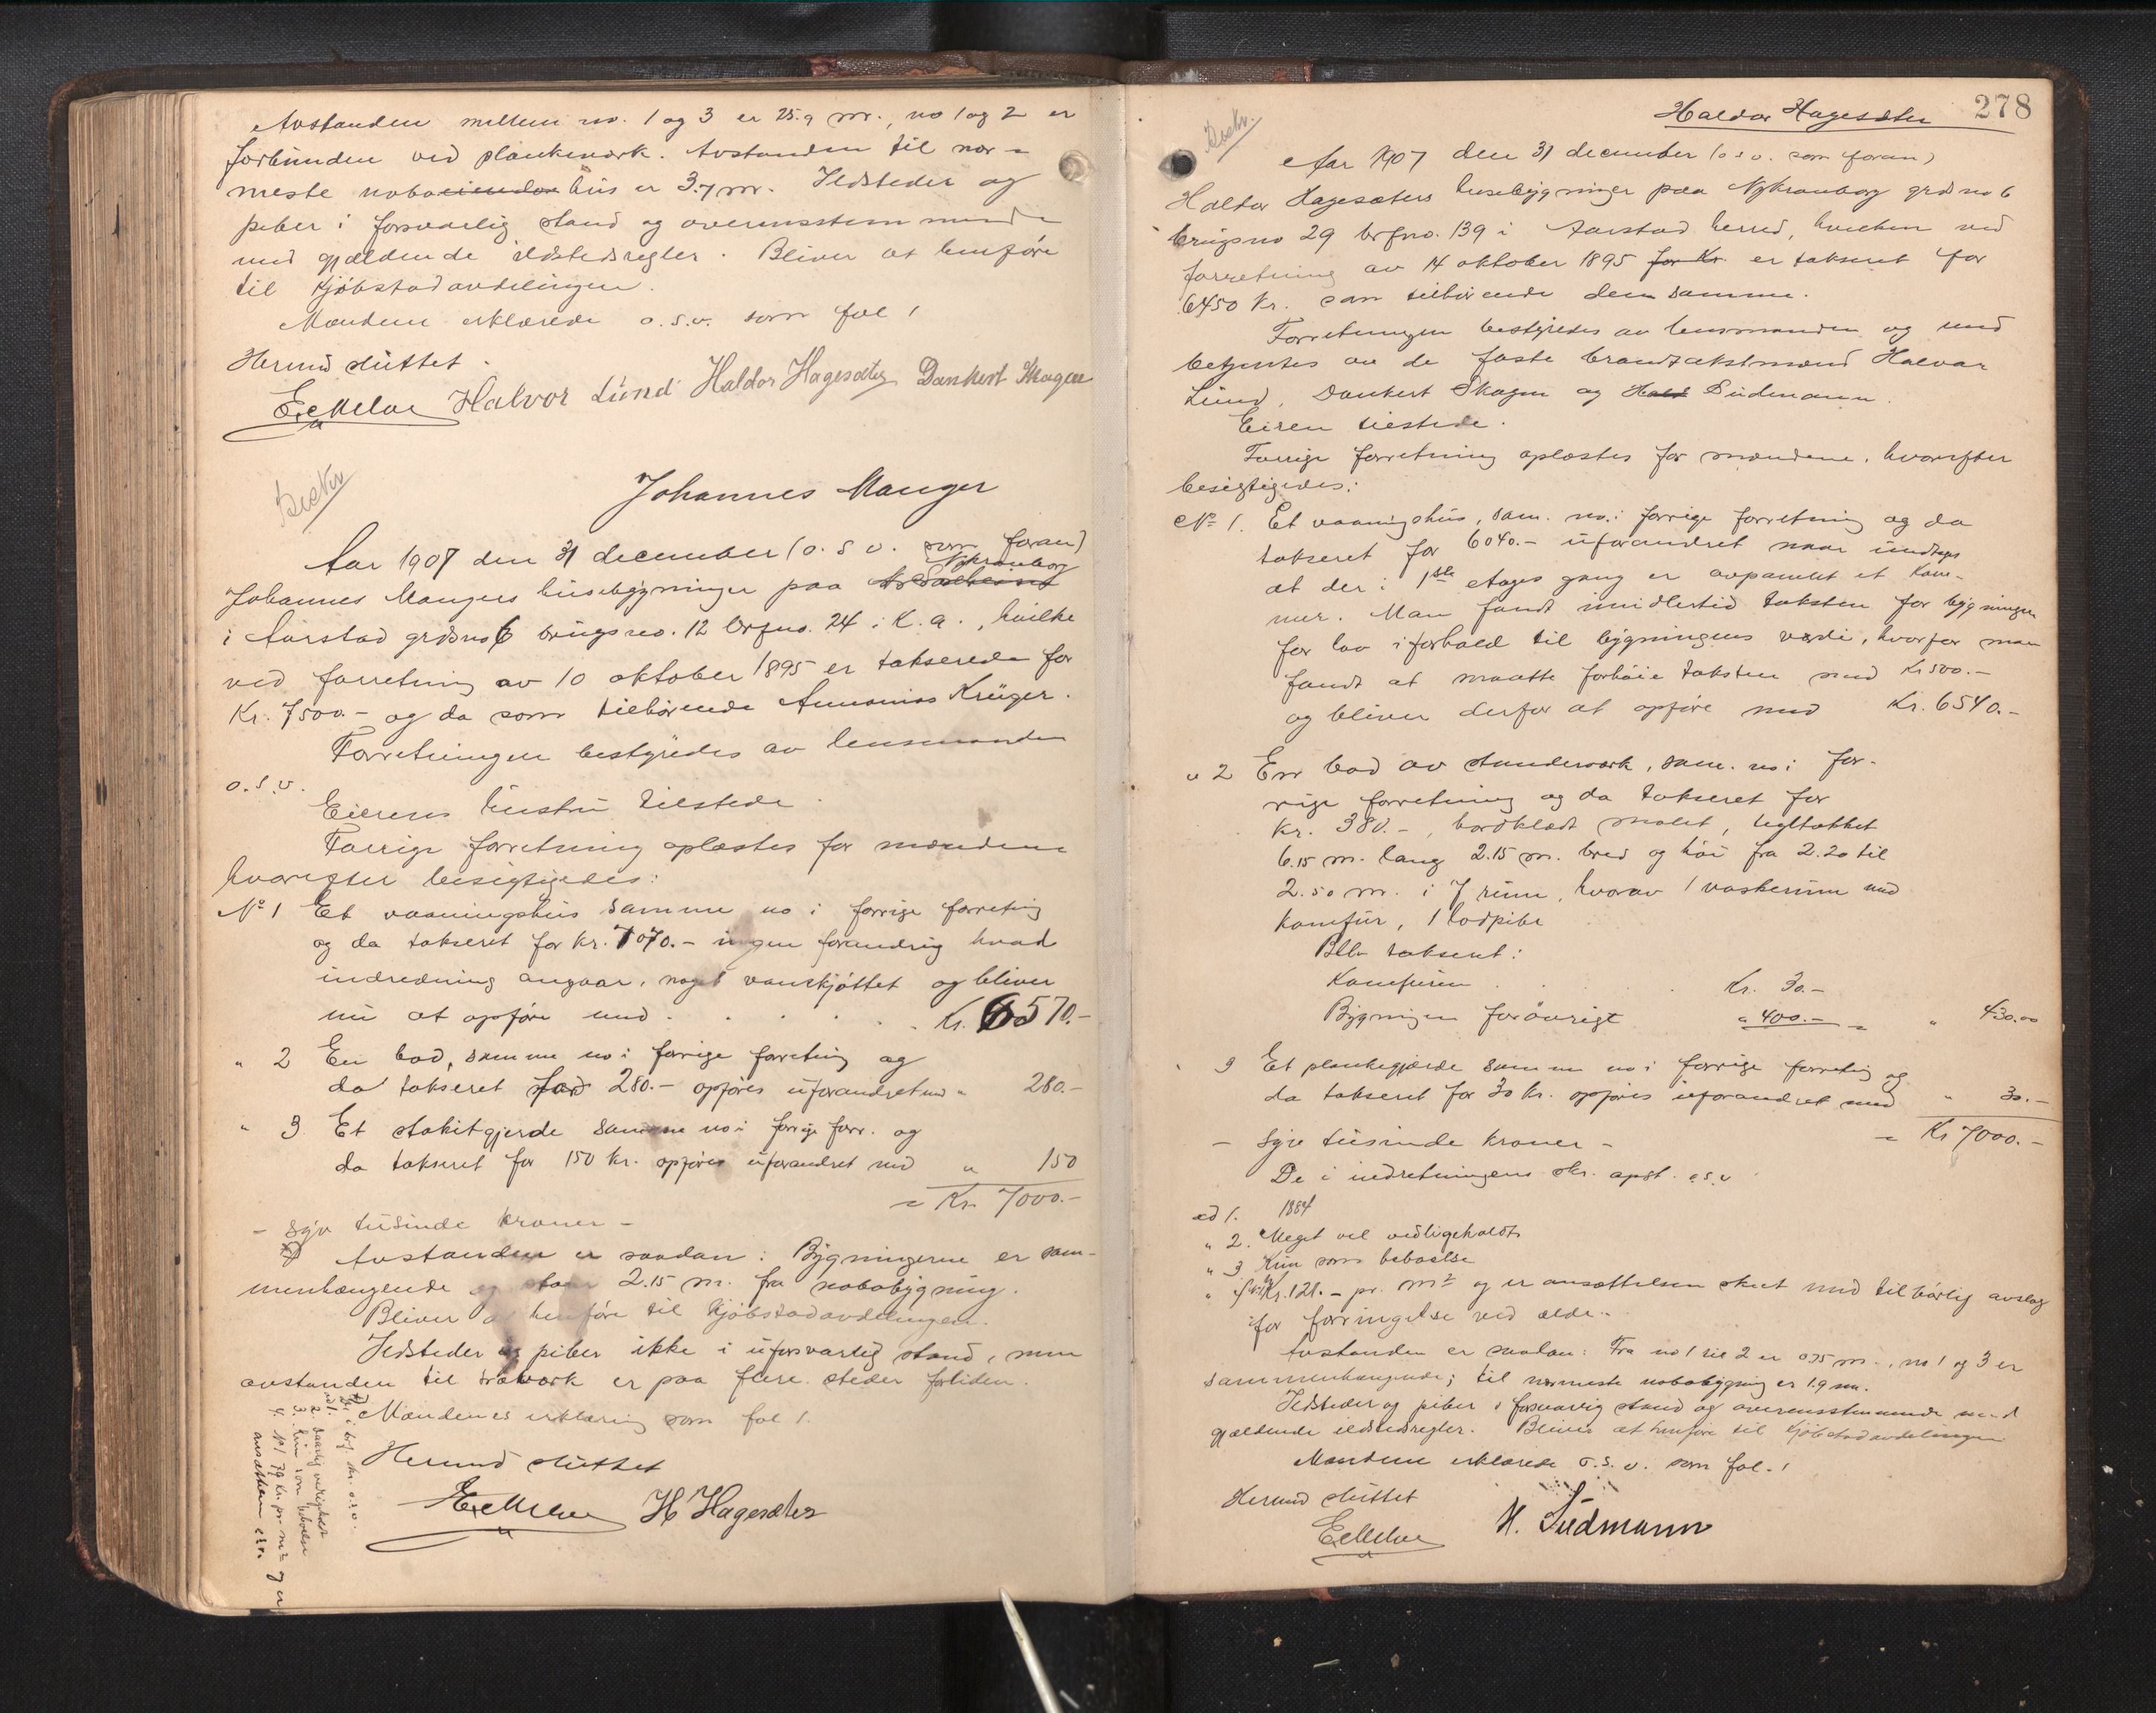 Avstanden mellem no. 1 og 3 er 25.9 m., no 1 og 2 er
forbunden ved plankeverk. Avstanden til nær-
meste naboeiendom hus er 3.7 m. Ildsteder og
piber i forsvarlig stand og overensstemmende
med gjældende ildstedsregler. Bliver at henføre
til kjøbstadavdelingen.
Mændene erklærede o.s.v. som fol 1
Hermed sluttet.
Halvor Lund Haldor Hagesæter Dankert Skagen
Beskr
Johannes Manger
Aar 1907 den 31 december (o.s.v. som foran)
Nykronborg
Johannes Mangers husebygninger paa
i Aarstad grdsno 6 brugsno. 12 brfno. 24 i l.a., hvilke
ved forretning av 10 oktober 1895 er takserede for
Kr. 7500.- og da som tilhørende Ammonius Krüger.
Forretningen bestyredes av lensmanden
o.s.v.
Eierens hustru tilstede.
Forrige forretning oplæstes for mændene
hvorefter besigtigedes:
No 1 Et vaaningshus samme no i forrige forretning
og da takseret for kr. 7070.- ingen forandring hvad
indredning angaar, noget vanskjøttet og bliver
nu at opføre med . . . . . . Kr. 6570.-
" 2 En bod, samme no i forrige forretning og
da takseret for 280.- opføres uforandret med " 280.-
" 3 Et stakitgjerde samme no i forrige forr. og
da takseret for 150 kr. opføres uforandret med " 150
= Kr. 7000.-
- syv tusinde kroner -
Avstanden er saadan: Bygningerne er sam-
menhængende og staar 2.15 m. fra nabobygning.
Bliver at henføre til kjøbstadavdelingen.
Ildsteder og piber ikke i uforsvarlig stand, men
avstanden til træverk er paa flere steder forliden.
Mændenes erklæring som fol 1.
Hermed sluttet
H Hagesæter
ad 1.
2. daarlig vedligeholdt
3. kun som beboelse
4. No 1 79 kr. pr. m2 og er
ansættelsen o.s.v.
278
Haldor Hagesæter
Beskr.
Aar 1907 den 31 december (o.s.v. som foran)
Haldor Hagesæters husebygninger paa Nykronborg grdsno 6
brugsno 29 brfno. 139 i Aarstad herred, hvilken ved
forretning av 14 oktober 1895 for Kr. er takseret for
6450 Kr. som tilhørende den samme.
Forretningen bestyredes av lensmanden og med
betjentes av de faste brandtakstmænd Halvor
Lund, Dankert Skagen og Hald Südmann.
Eiren tilstede.
Forrige forretning oplæstes for mændene, hvorefter
besigtigedes:
No 1. Et vaaningshus, sam. no. i forrige forretning og da
takseret for 6040.- uforandret naar undtages
at der i 1ste etages gang er avpanelet et kam-
mer. Man fandt imidlertid taksten for bygningen
for lav i forhold til bygningens værdi, hvorfor man
fandt at maatte forhøie taksten med Kr 500.-
og bliver derfor at opføre med Kr. 6540.-
" 2 En bod av stenderverk, sam. no i for-
rige forretning og da takseret for
Kr. 380.-, bordklædt malet, tegltækket
6.15 m. lang 2.15 m. bred og høi fra 2.20 til
2.50 m. i 7 rum, hvorav 1 vaskerum med
komfur, 1 lodpibe
Blev takseret:
Komfuren . . . Kr. 30.-
Bygningen forøvrigt " 400.- = " 430.00
" 3 Et plankegjærde samme no i forrige forretning og
da takseret for 30 kr. opføres uforandret med " 30.-
- Syv tusinde kroner - = Kr 7000.-
De i indretningens skr. opst. o.s.v
ad 1. 1884
" 2. Meget vel vedligeholdt
" 3 Kun som beboelse
Kr. 121.- pr. m2 og er ansættelsen skeet med tilbørlig avslag
for forringelse ved ælde.
Avstanden er saadan: Fra no 1 til 2 er 0.75 m., no 1 og 3 er
sammenhængende; til nærmeste nabobygning er 1.9 m.
Ildsteder og piber i forsvarlig stand og overensstemmende med
gjældende ildstedsregler. Bliver at henføre til kjøbstadavdelingen
Mændene erklærede o.s.v. som fol. 1
Hermed sluttet
H. Südmann